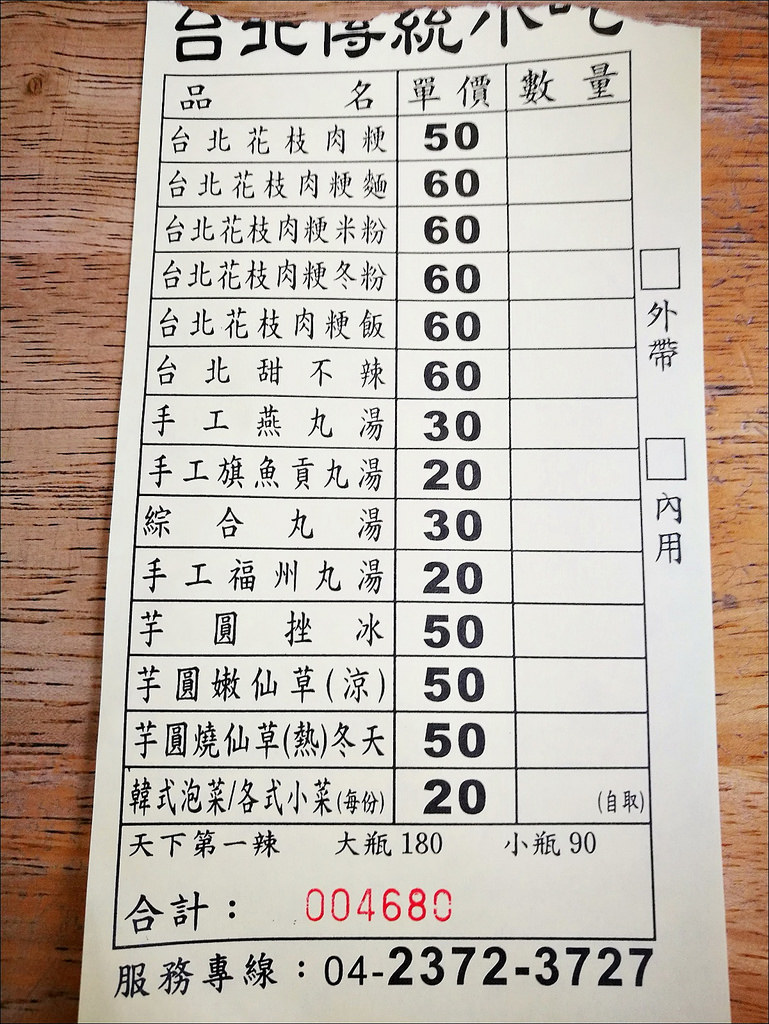 台北傳統小吃
品名 單價 數量
台北花枝肉粳 50
台北花枝肉粳麵 60
台北花枝肉粳米粉 60
台北花枝肉粳冬粉 60
台北花枝肉粳飯 60
台北甜不辣 60
手工燕丸湯 30
手工旗魚貢丸湯 20
綜合丸湯 30
手工福州丸湯 20
芋圓挫冰 50
芋圓嫩仙草(涼) 50
芋圓燒仙草(熱)冬天 50
韓式泡菜/各式小菜(每份) 20 (自取)
天下第一辣 大瓶 180 小瓶 90
合計： 004680
服務專線：04-2372-3727
□外帶
□內用